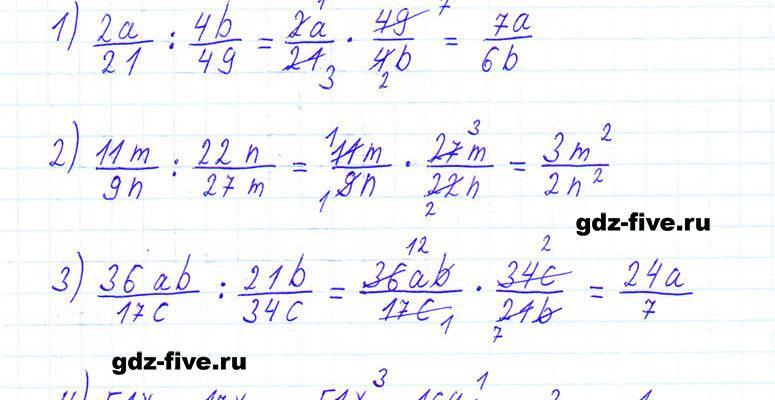 1) 2a/21 : 4b/49 = 2a/21 · 49/4b = 7a/6b
2) 11m/9n : 22n/27m = 11m/9n · 27m/22n = 3m²/2n²
gdz-five.ru
3) 36ab/17c : 21b/34c = 36ab/17c · 34c/21b = 24a/7
gdz-five.ru